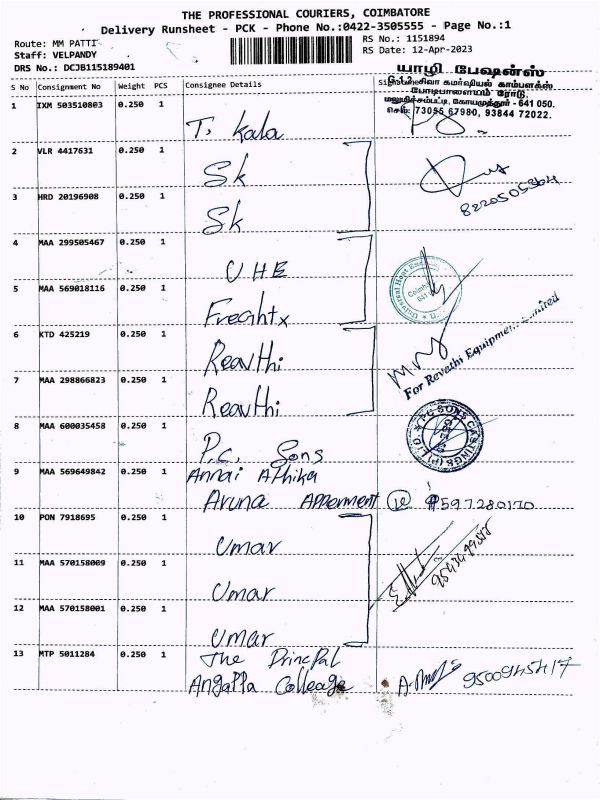 THE PROFESSIONAL COURIERS, COIMBATORE
Delivery Runsheet - PCK - Phone No.:0422-3505555 - Page No.:1
Route: MM PATTI RS No.: 1151894
Staff: VELPANDY RS Date: 12-Apr-2023
DRS No.: DCJB115189401
யாழி பேஷன்ஸ்
S No Consignment No Weight PCS Consignee Details
G-1,2 சிவா கமர்ஷியல் காம்பளக்ஸ்
போடிபாளையம் ரோடு,
மலுமிச்சம்பட்டி, கோயமுத்தூர் - 641 050.
செல்: 73055 67980, 93844 72022.
1 IXM 503510803 0.250 1 T. Kala
2 VLR 4417631 0.250 1 Sk
8220505364
3 HRD 20196908 0.250 1 Sk
4 MAA 299505467 0.250 1 UHE
5 MAA 569018116 0.250 1 Freghtx
6 KTD 425219 0.250 1 Reavthi
For Revathi Equipment Limited
7 MAA 298866823 0.250 1 Reavthi
8 MAA 600035458 0.250 1 P.C. Sons
PC SONS CASTINGS (P) LTD
9 MAA 569649842 0.250 1 Annai Athika
Aruna Apperment 9597280170
10 PON 7918695 0.250 1 Umar
11 MAA 570158009 0.250 1 Umar
12 MAA 570158001 0.250 1 Umar
13 MTP 5011284 0.250 1 The Princpal
Angappa Colleage 9500945417